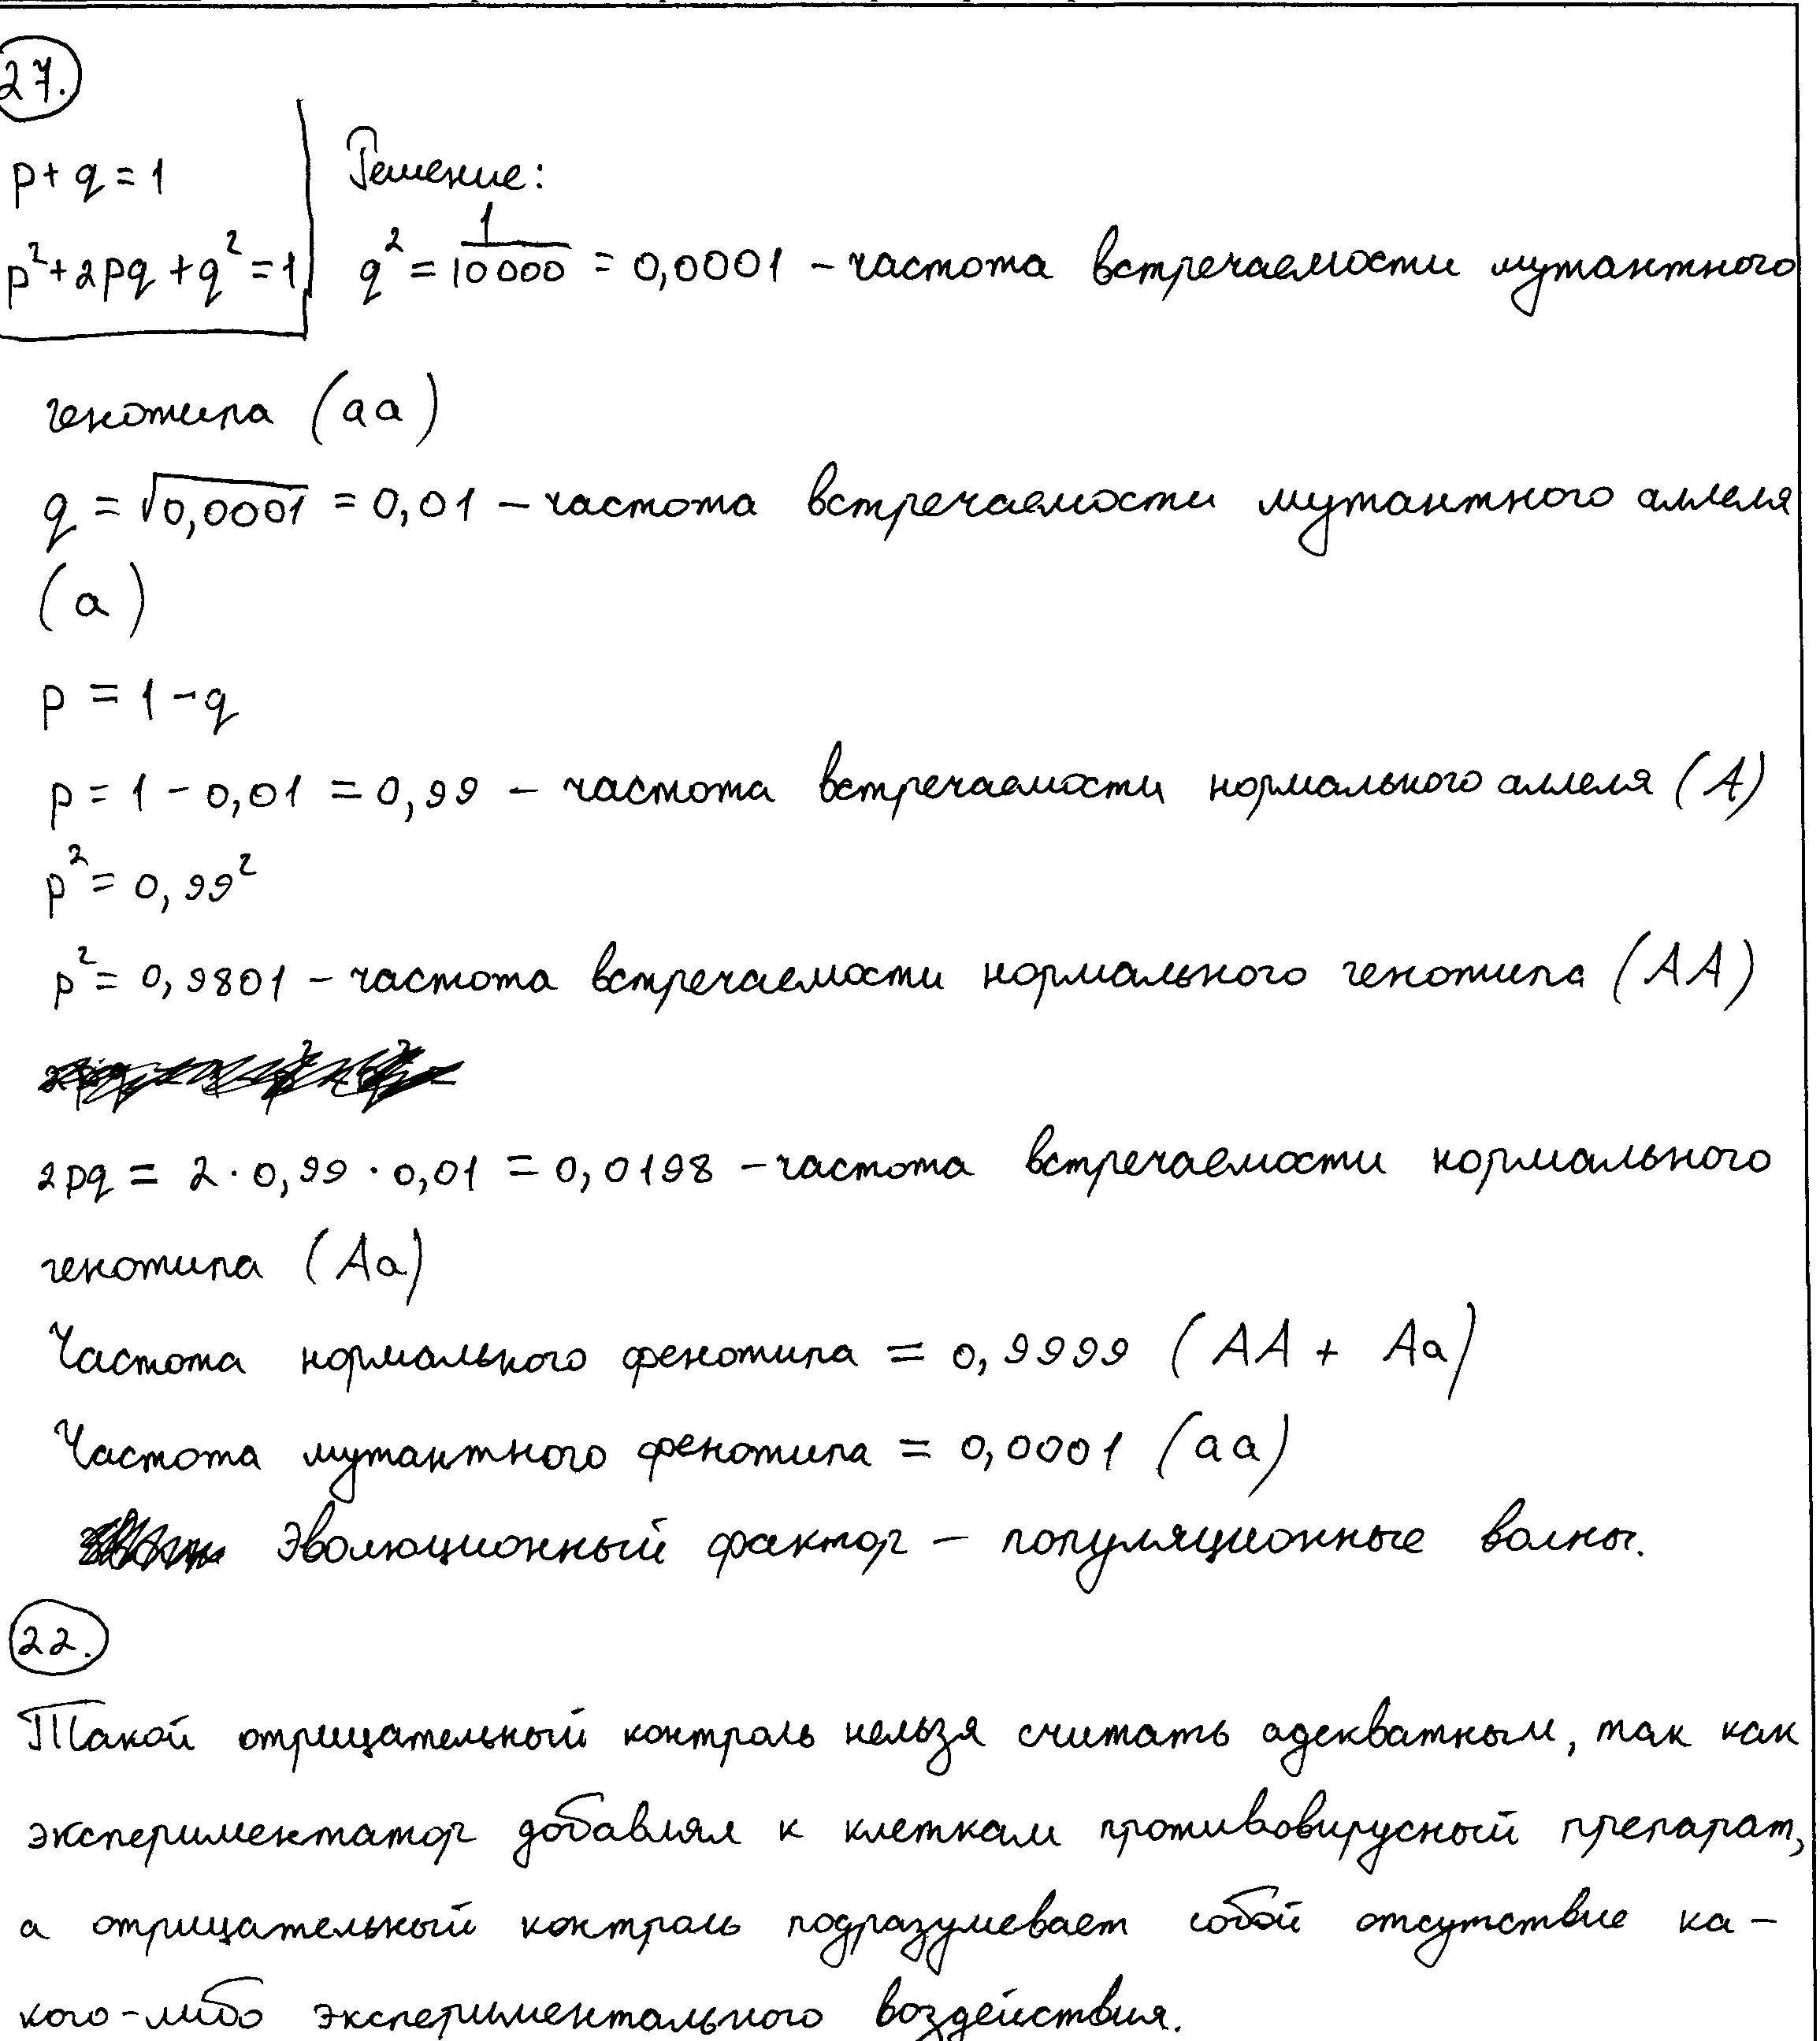 27.
p + q = 1
p² + 2pq + q² = 1
Решение:
q² = 1/10000 = 0,0001 – частота встречаемости мутантного
генотипа (aa)
q = √0,0001 = 0,01 – частота встречаемости мутантного аллеля
(a)
p = 1 – q
p = 1 – 0,01 = 0,99 – частота встречаемости нормального аллеля (A)
p² = 0,99²
p² = 0,9801 – частота встречаемости нормального генотипа (AA)
2pq = 2 · 0,99 · 0,01 = 0,0198 – частота встречаемости нормального
генотипа (Aa)
Частота нормального фенотипа = 0,9999 (AA + Aa)
Частота мутантного фенотипа = 0,0001 (aa)
Эволюционный фактор – популяционные волны.
22.
Такой отрицательный контроль нельзя считать адекватным, так как
экспериментатор добавлял к клеткам противовирусный препарат,
а отрицательный контроль подразумевает собой отсутствие ка-
кого-либо экспериментального воздействия.